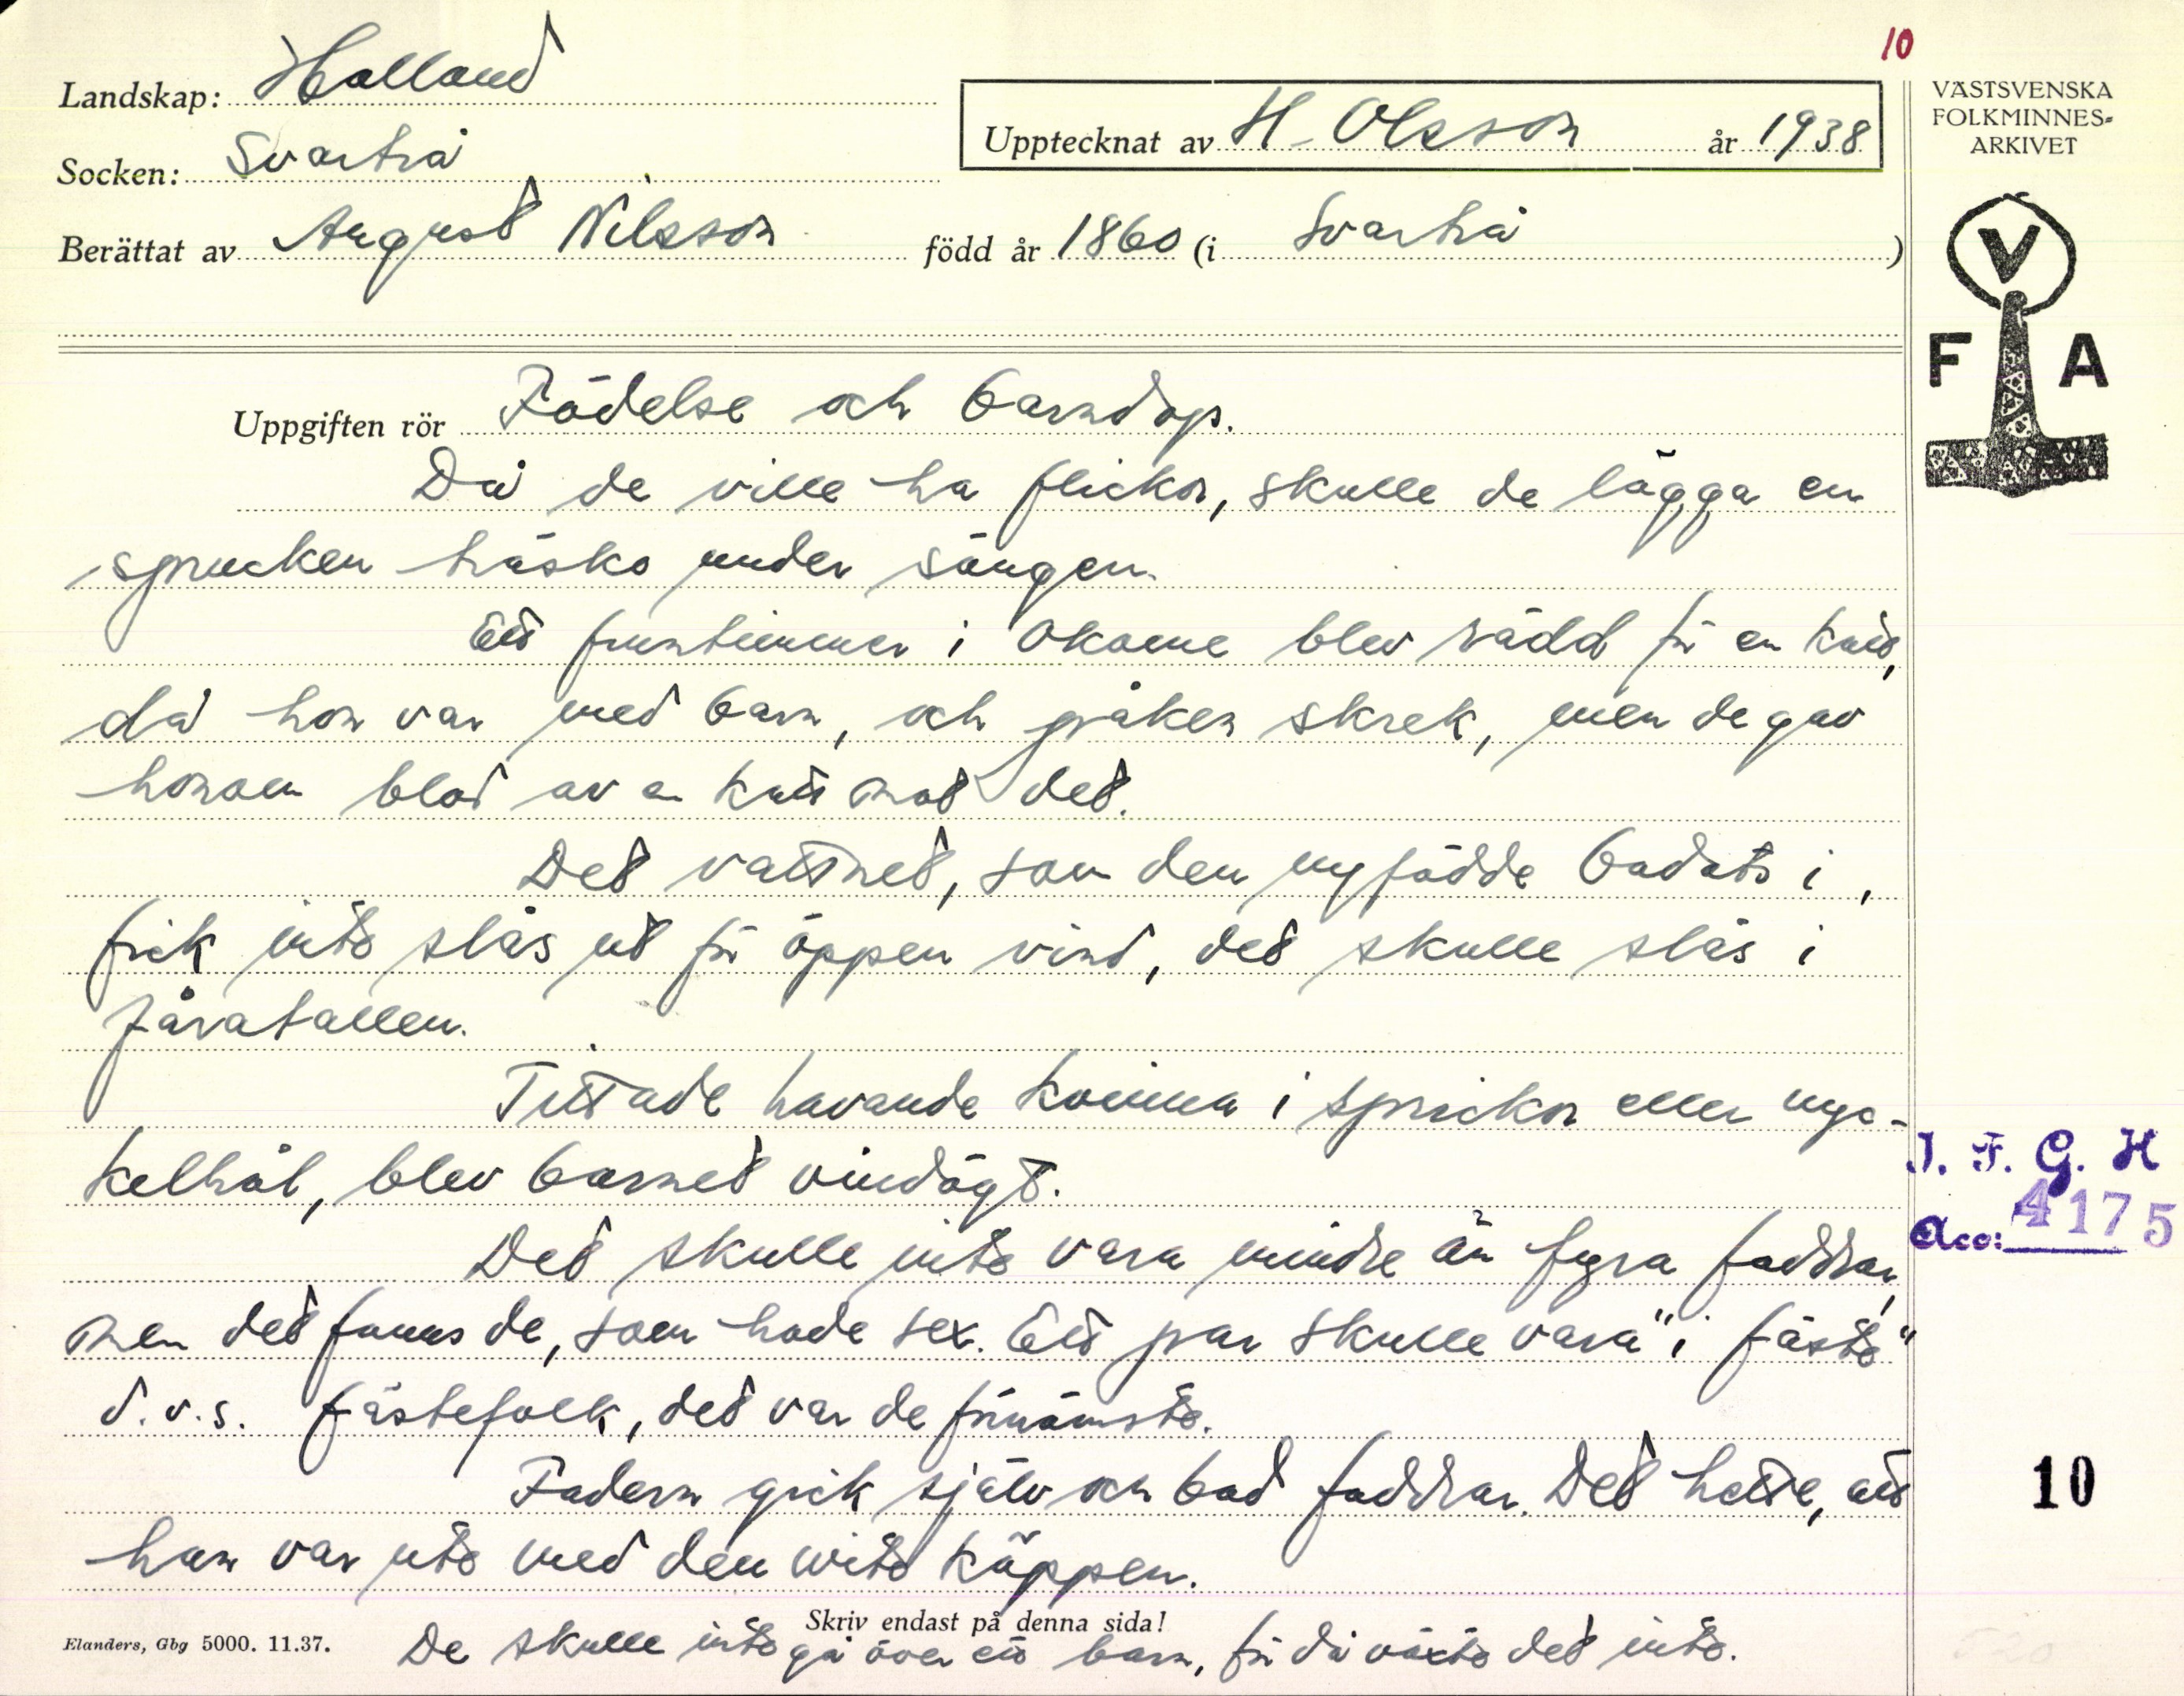 10
Landskap: Halland
Socken: Svartrå
Upptecknat av H. Olsson år 1938
Berättat av August Nilsson född år 1860 (i Svartrå)
VÄSTSVENSKA
FOLKMINNES-
ARKIVET
V
F A
Uppgiften rör Födelse och barndop.
Då de ville ha flickor, skulle de lägga en
sprucken häsko under sängen.
Ett fruntimmer i Okome blev rädd för en katt,
då hon var med barn, och pråken skrek, men de gav
honom blod av en katt mot det.
Det vattnet, som den nyfödde badats i,
fick inte slås ut för öppen vind, det skulle slås i
fårastallen.
Tittade havande kvinna i sprickor eller nyc-
kelhål, blev barnet vindögt.
Det skulle inte vara mindre än fyra faddrar,
men det fanns de, som hade sex. Ett par skulle vara "i fäste"
d.v.s. fästefolk, det var de förnämste.
Fadern gick själv och bad faddrar. Det hette, att
han var ute med den vite käppen.
Skriv endast på denna sida!
De skulle inte gå över ett barn, för då växte det inte.
Elanders, Gbg 5000. 11.37.
I. F. G. H
Acc: 4175
10